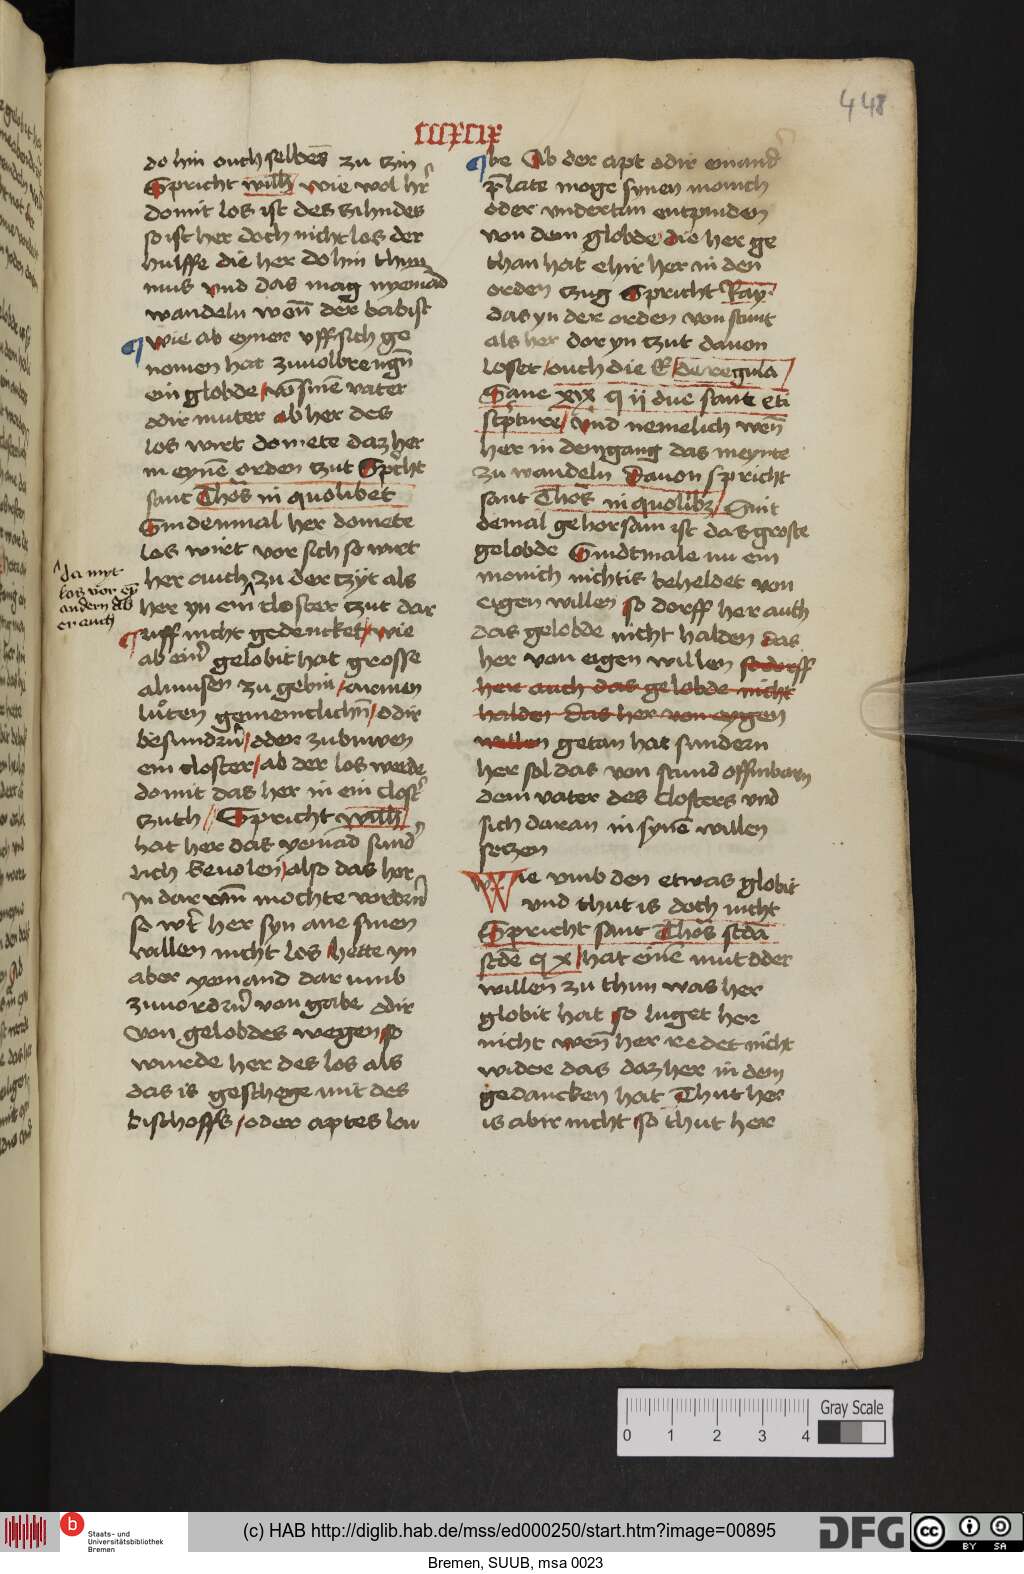 448
cccxcix
do hin ouch selbes zu tzin
Spricht wilh wie wol hr
domit los ist des Sihndes
so ist her doch nicht los der
hulffe die her do hin thun
mus vnd das mag nyemad
wandeln wen der babist
wie ab eyner vff sich ge
nomen hat zuuolbrengn
ein globde / vo sine vater
odir muter ab her des
los wirt do mete daz her
in eyne orden tzut Spricht
sant Thos in quolibet
Sindenmal her domete
los wirt vor sich so wirt
her auch zu der tzyt als
her yn ein closter tzut dar
uff nicht gedencket / wie
ab einr gelobit hat grosse
almusen zu gebin / armen
luten gemeinclichn / odir
besundrn / oder zubuwen
ein closter / ab der los werde
domit das her in ein clost
tzuth / Spricht wilh
hat her das yemad sund
lich beuolen / also das her
In dar vmm mochte vordrn
so wer her syn ane sinen
willen nicht los hette yn
aber yemand dar vmb
zuuordrn von gabe odir
von gelobdes wegen so
wurde her des los als
das is geschege mit des
bischoffs / oder aptes lou
da myt
los vor eyn
andern ab
er auch
be Ab der apt odir eynand
plate moge synen monich
oder vndertan entpinden
von dem globde die her ge
than hat ehir her in den
orden tzug Spricht Ray
das yn der orden von stunt
als her dor yn tzut dauon
loset / ouch die gl / de regula /
Sane xix q ij due sunt eti
scripture / vnd nemelich wen
her in dem gang das meynte
zu wandeln Dauon spricht
sant Thos in quolibz / Sint
demal gehorsam ist das groste
gelobde Sindtmale nu ein
monich nichtis beheldet von
eigen willen so dorff her auch
das gelobde nicht halden das
her von eigen willen so dorff
her auch das gelobde nicht
halden das her von eygen
willen getan hat sundern
her sol das von stund offinbarn
dem vater des closters vnd
sich daran in syne willen
setzen
Wie vmb den etwas globit
vnd thut is doch nicht
Spricht sant Thos scda
scde q x / hat eine mut oder
willen zu thun was her
globit hat so luget her
nicht wen her redet nicht
wider das daz her in dem
gedancken hat Thut her
is abir nicht so thut her
Gray Scale
0 1 2 3 4
Staats- und
Universitätsbibliothek
Bremen
(c) HAB http://diglib.hab.de/mss/ed000250/start.htm?image=00895
DFG
cc BY SA
Bremen, SUUB, msa 0023